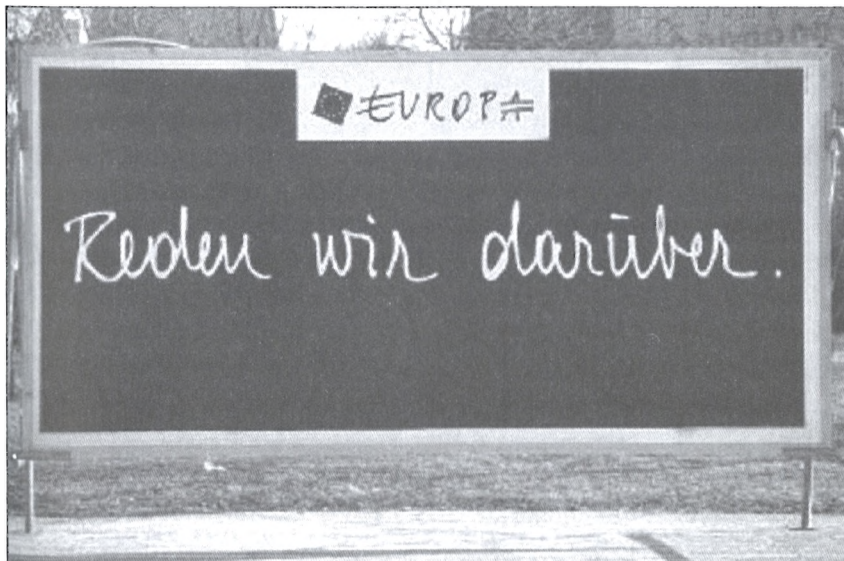 EUROPA
Reden wir darüber.